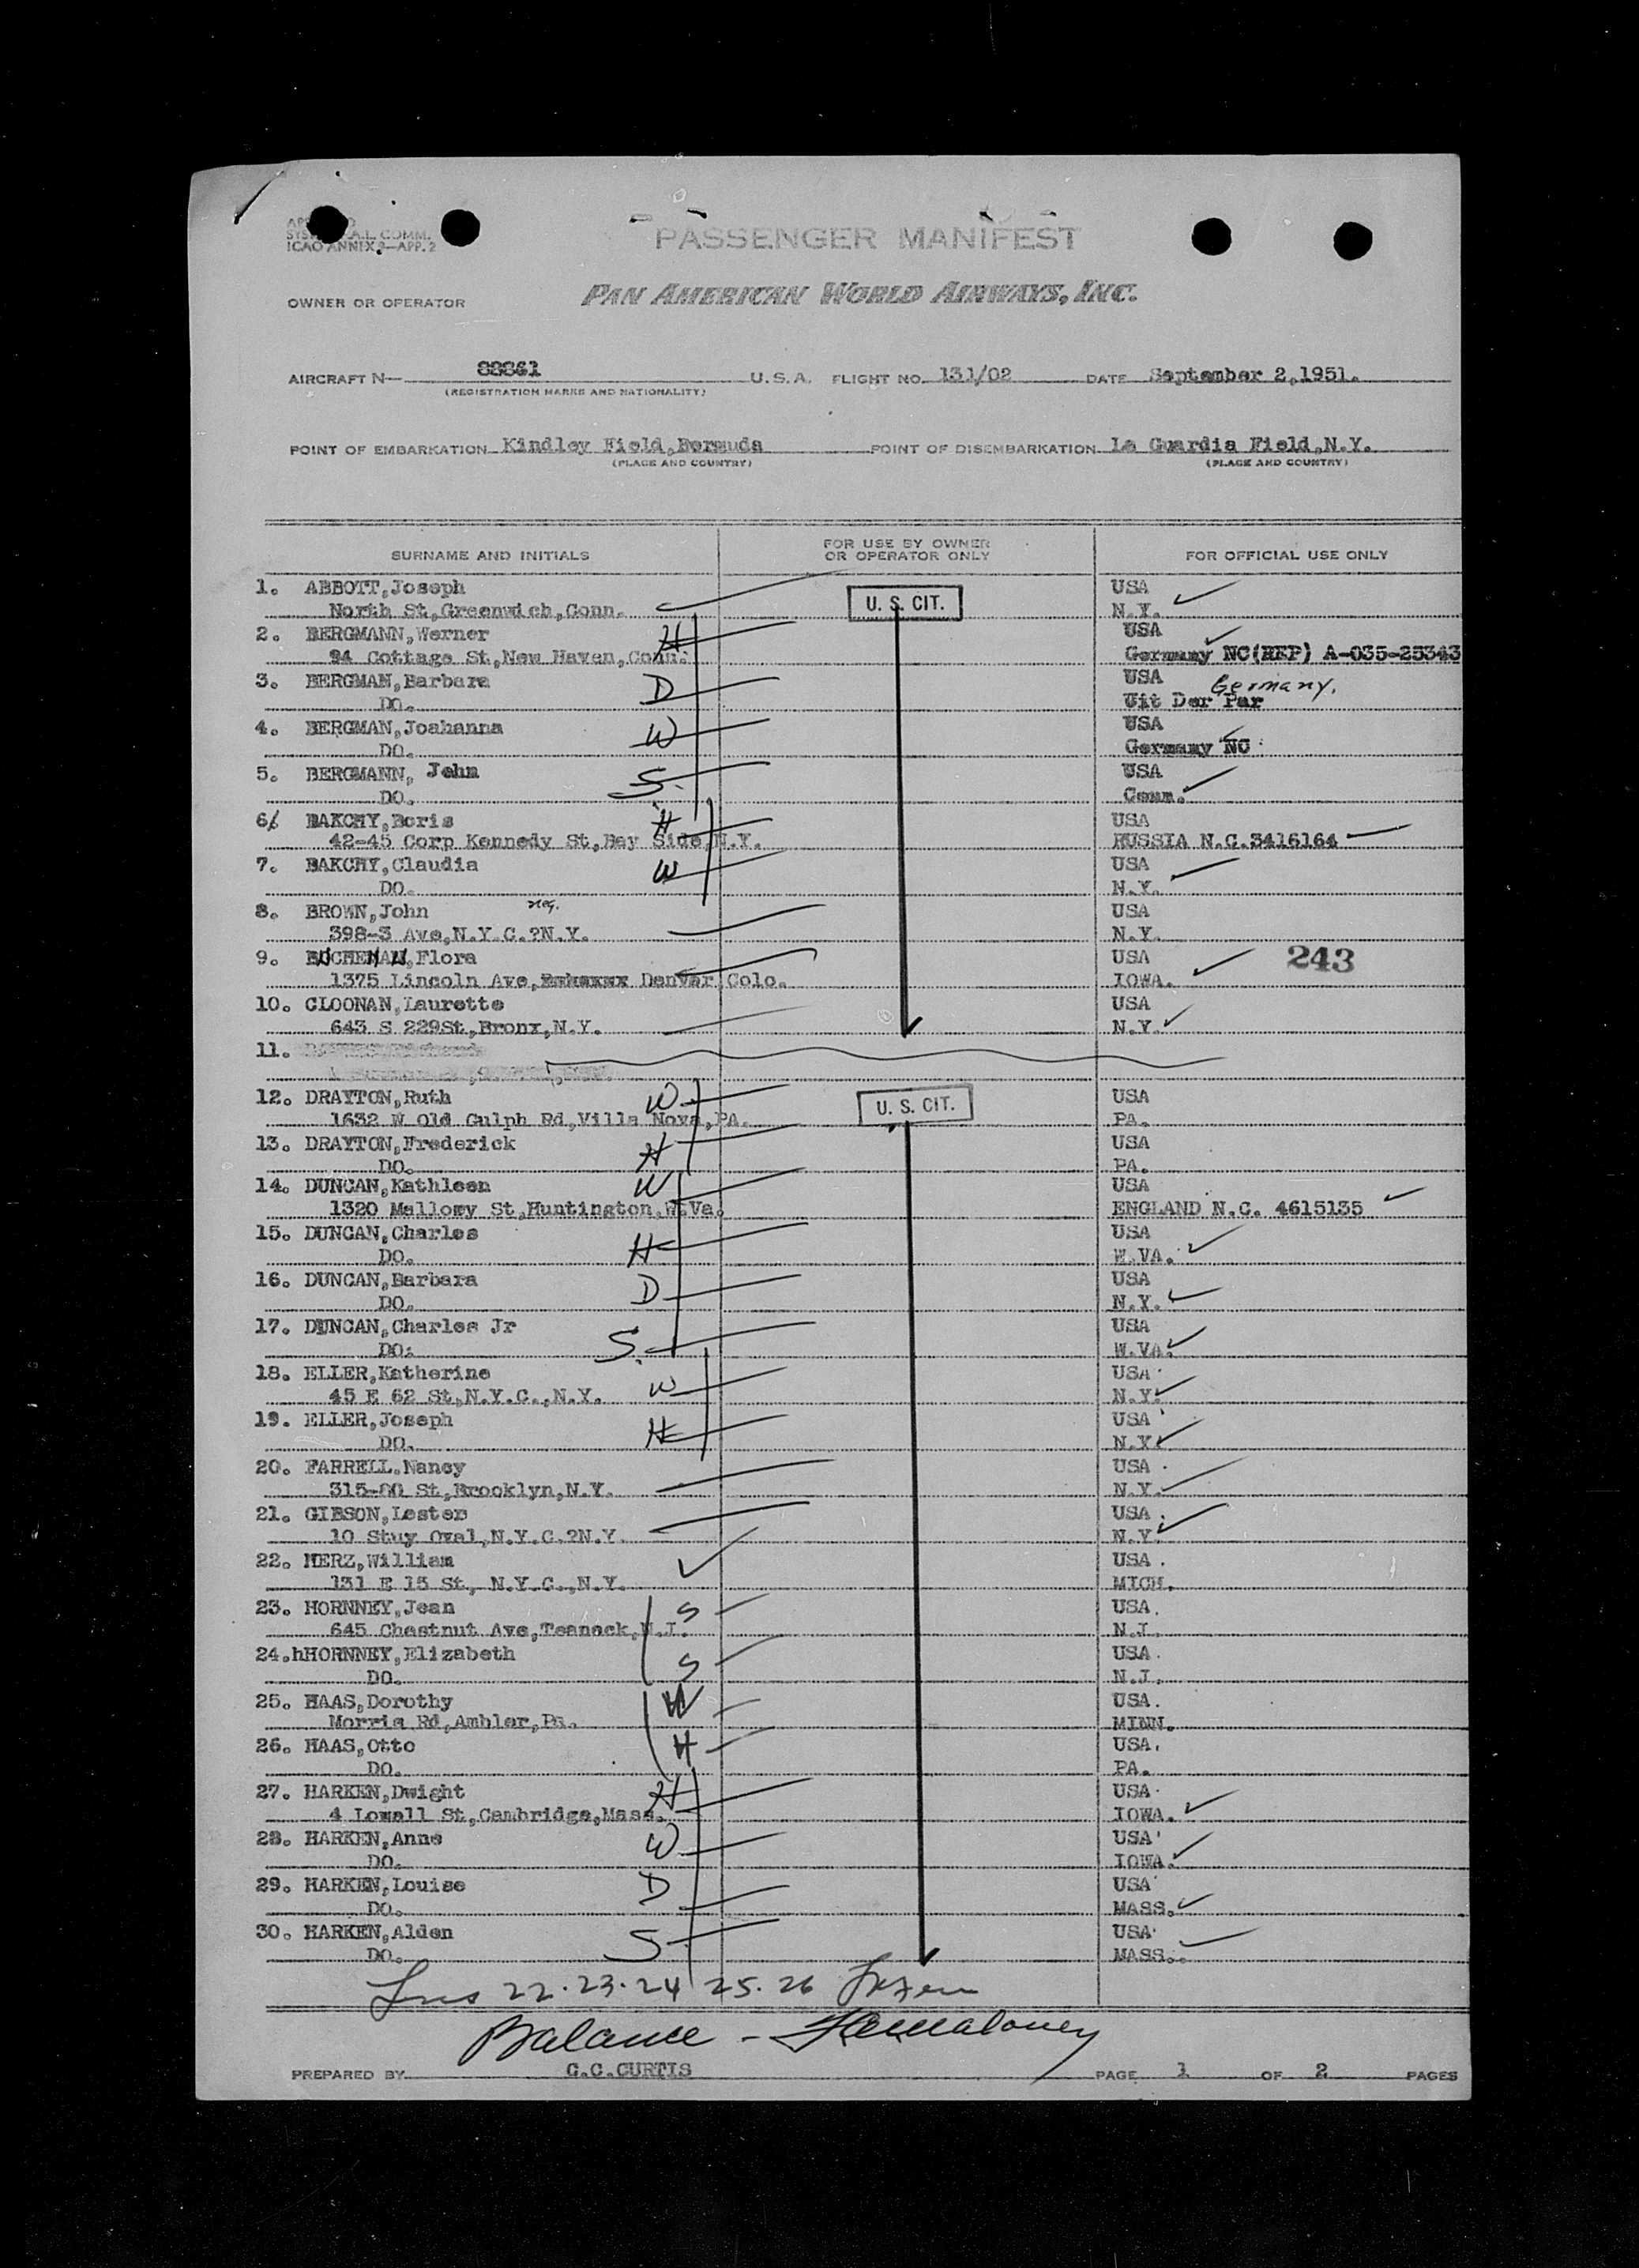 PASSENGER MANIFEST
ICAO ANNEX 9—APP. 2
OWNER OR OPERATOR PAN AMERICAN WORLD AIRWAYS, INC.
AIRCRAFT N— U.S.A. FLIGHT NO. 131/02 DATE September 2,1951.
(REGISTRATION MARKS AND NATIONALITY)
POINT OF EMBARKATION Kindley Field,Bermuda POINT OF DISEMBARKATION La Guardia Field,N.Y.
(PLACE AND COUNTRY) (PLACE AND COUNTRY)
SURNAME AND INITIALS FOR USE BY OWNER OR OPERATOR ONLY FOR OFFICIAL USE ONLY
1. ABBOTT,Joseph USA
North St,Greenwich,Conn. U. S. CIT. N.Y.
2. BERGMANN,Werner H USA
94 Cottage St,New Haven,Conn. Germany NC(REP) A-035-25343
3. BERGMAN,Barbara D USA Germany.
DO. Uit Der Par
4. BERGMAN,Joahanna W USA
DO. Germany NC
5. BERGMANN, John S. USA
DO. Conn.
6. BAKCHY,Boris H USA
42-45 Corp Kennedy St,Bay Side,N.Y. RUSSIA N.C.3416164
7. BAKCHY,Claudia W USA
DO. N.Y.
8. BROWN,John neg. USA
398-3 Ave,N.Y.C.?N.Y. N.Y.
9. BUCHENAU,Flora USA 243
1375 Lincoln Ave, Denver,Colo. IOWA.
10. CLOONAN,Laurette USA
643 S 229St,Bronx,N.Y. N.Y.
11.
12. DRAYTON,Ruth W USA
1632 W Old Gulph Rd,Villa Nova,PA. U. S. CIT. PA.
13. DRAYTON,Frederick H USA
DO. PA.
14. DUNCAN,Kathleen W USA
1320 Mallory St,Huntington,W.Va. ENGLAND N.C. 4615135
15. DUNCAN,Charles H USA
DO. W.VA.
16. DUNCAN,Barbara D USA
DO. N.Y.
17. DUNCAN,Charles Jr S. USA
DO: W.VA.
18. ELLER,Katherine W USA
45 E 62 St,N.Y.C.,N.Y. N.Y.
19. ELLER,Joseph H USA
DO. N.Y.
20. FARRELL.Nancy USA
315-80 St,Brooklyn,N.Y. N.Y.
21. GIBSON,Lester USA
10 Stuy Oval,N.Y.C.?N.Y. N.Y.
22. HERZ,William USA
131 E 15 St, N.Y.C.,N.Y. MICH.
23. HORNNEY,Jean S USA
645 Chestnut Ave,Teaneck,N.J. N.J.
24.hHORNNEY,Elizabeth S USA
DO. N.J.
25. HAAS,Dorothy W USA.
Morris Rd,Ambler,Pa. MINN.
26. HAAS,Otto H USA.
DO. PA.
27. HARKEN,Dwight H USA
4 Lowell St,Cambridge,Mass. IOWA.
28. HARKEN,Anne W USA
DO. IOWA.
29. HARKEN,Louise D USA
DO. MASS.
30. HARKEN,Alden S USA
DO. MASS.
22.23.24 25.26
Balance -
PREPARED BY G.C.CURTIS PAGE 1 OF 2 PAGES